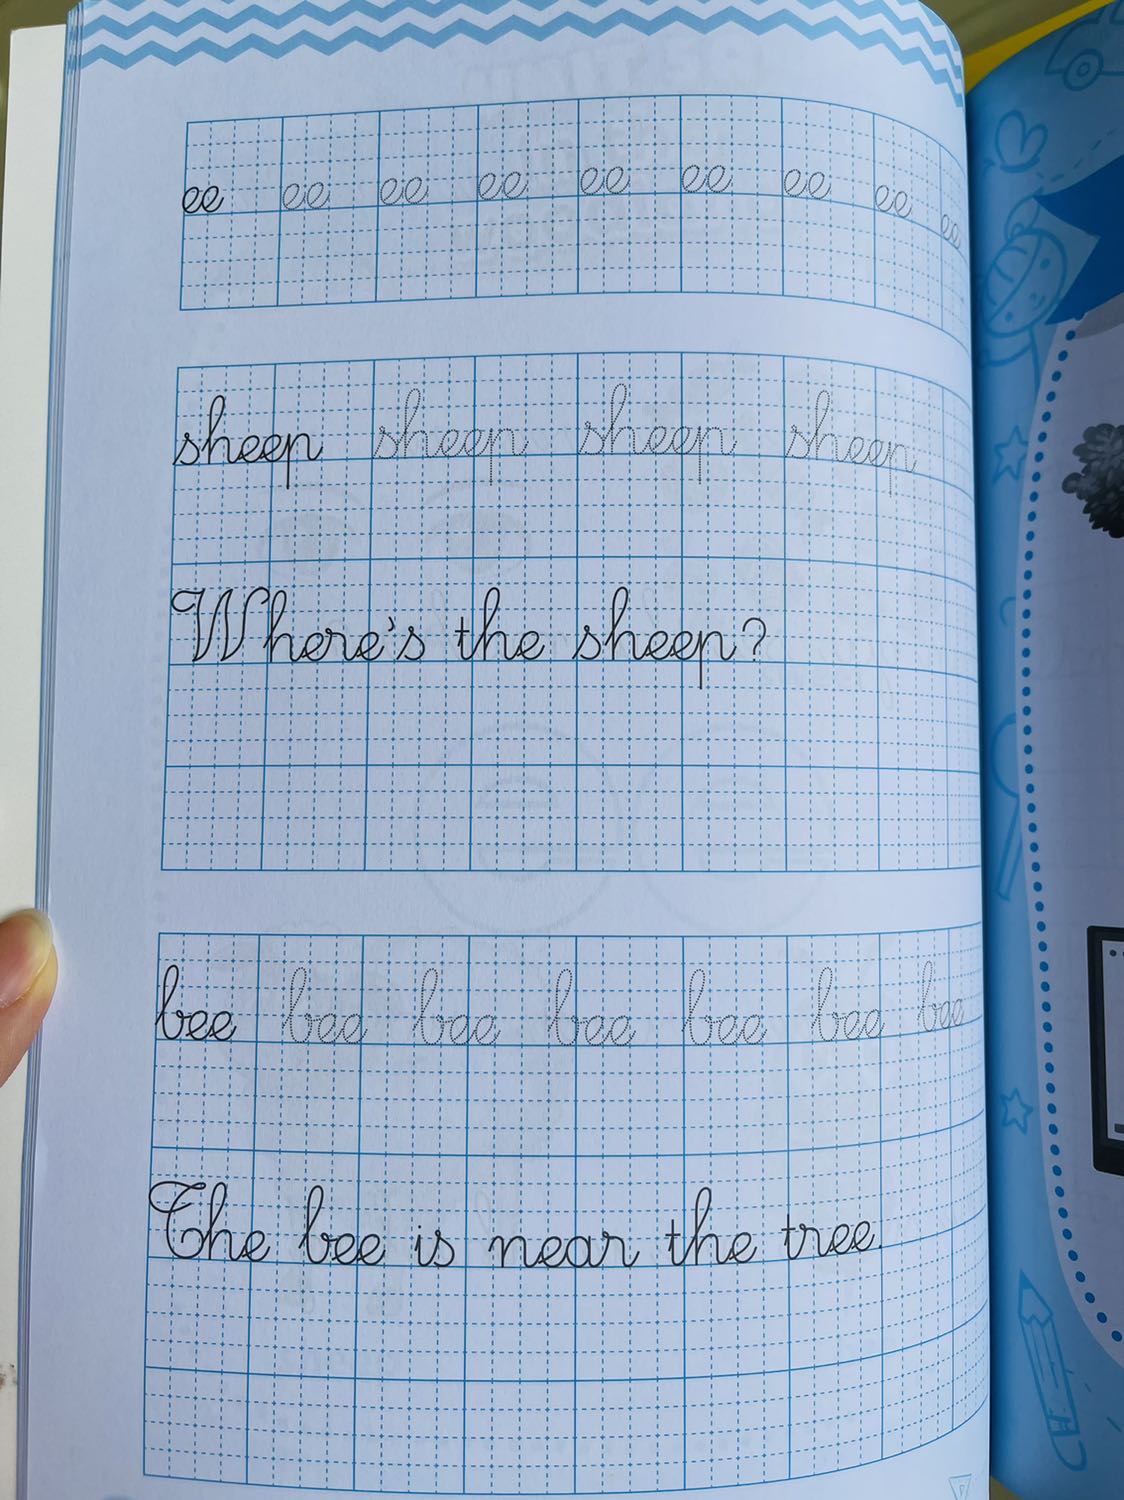 ee ee ee ee ee ee ee ee ee
sheep sheep sheep sheep
Where's the sheep?
bee bee bee bee bee bee bee
The bee is near the tree.